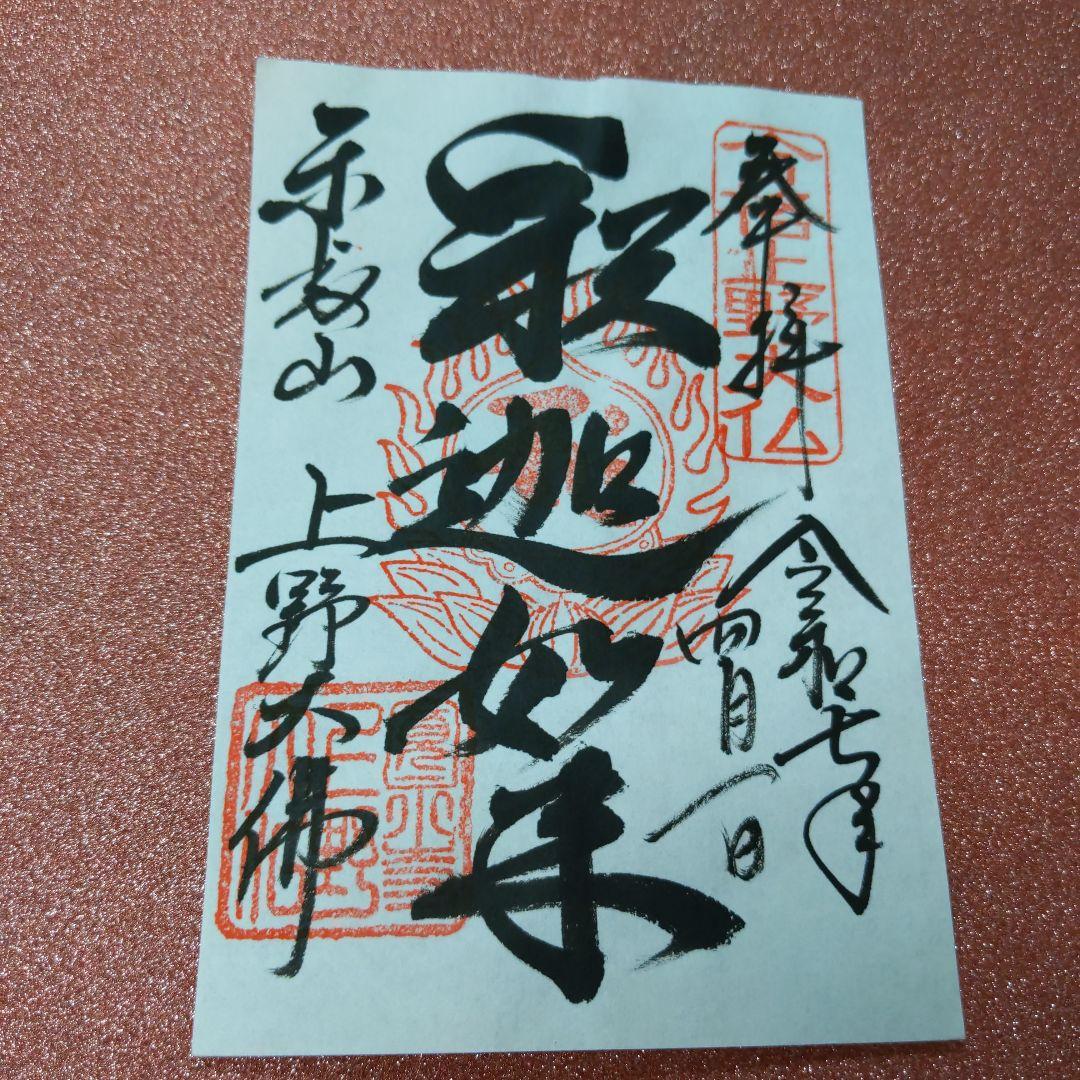 奉拝
令和七年
四月一日
上野大仏
釈迦如来
東叡山
上野大佛